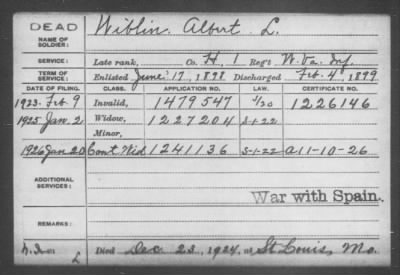 DEAD
NAME OF SOLDIER: Wiblin, Albert L.
SERVICE: Late rank, Co. H, 1 Reg't W. Va. Inf.
TERM OF SERVICE: Enlisted June 17, 1898 Discharged Feb. 4, 1899
DATE OF FILING. CLASS. APPLICATION NO. LAW. CERTIFICATE NO.
1923. Feb 9 Invalid, 1479547 1226146
1925 Jan 2 Widow, 1227204 5-1-22
Minor,
1926 Jan 20 Cont Wid 1241136 5-1-22 a11-10-26
ADDITIONAL SERVICES:
War with Spain.
REMARKS:
Died Dec. 23, 1924, at St Louis, Mo.